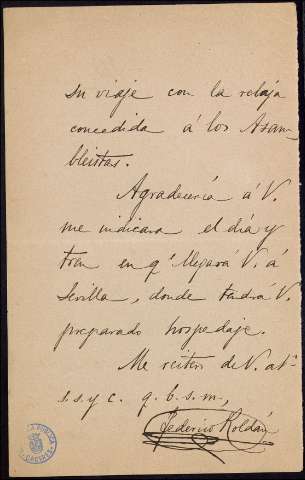 su viaje con la rebaja
concedida á los Asam-
bleistas.
Agradecería á V.
me indicara el día y
tren en q.e llegara V. á
Sevilla, donde tendrá V.
preparado hospedaje.
Me reitero de V. at.o
s.s. y c. q. b. s. m.,
Federico Roldán
CACERES